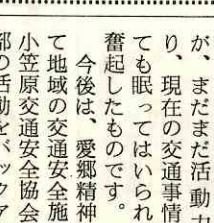 が、まだまだ活動力
り、現在の交通事情
ても眠ってはいられ
奮起したものです。
今後は、愛郷精神
て地域の交通安全施
小笠原交通安全協会
部の活動をバックア